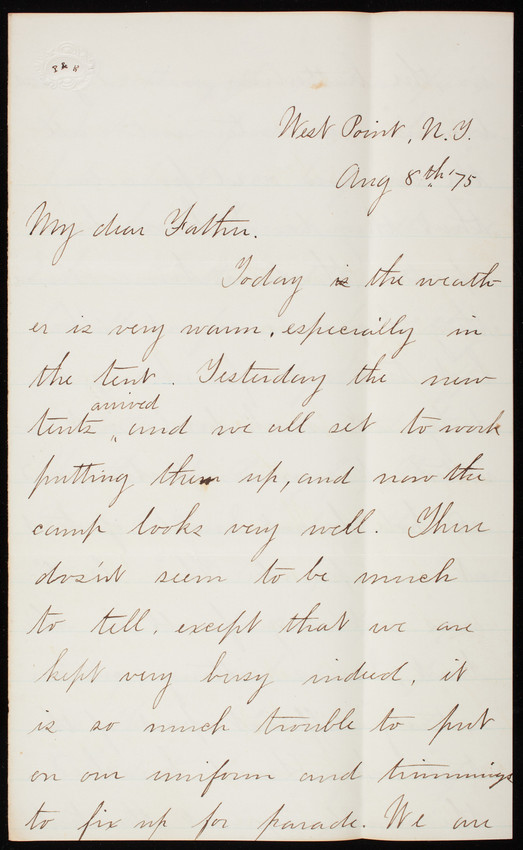 P & H
West Point, N.Y.
Aug 8th '75
My dear Father.
Today is the weath-
er is very warm, especially in
the tent. Yesterday the new
arrived
tents, and we all set to work
putting them up, and now the
camp looks very well. There
dos'nt seem to be much
to tell, except that we are
kept very busy indeed, it
is so much trouble to put
on our uniform and trimmings
to fix up for parade. We are